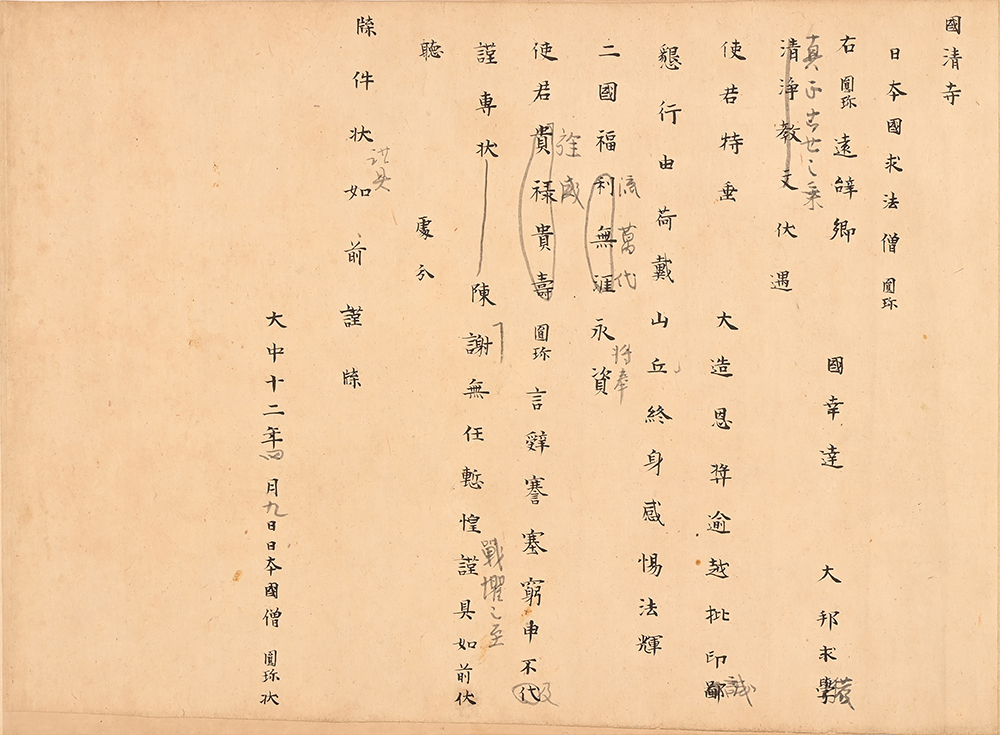 國清寺
日本國求法僧圓珎
右圓珎遠辝鄉國幸達大邦求學
清淨教文伏遇
使君特垂大造恩奨逾越批印鄙誠
懇行由荷戴山丘終身感惕法輝
流萬代將奉
二國福利無涯永資
使君貴禄貴壽圓珎言辤謇塞窮申不代及
謹專狀陳謝無任慙惶謹具如前伏
戰懼之至
聽處分
牒件狀如前謹牒
大中十二年四月九日日本國僧圓珎狀